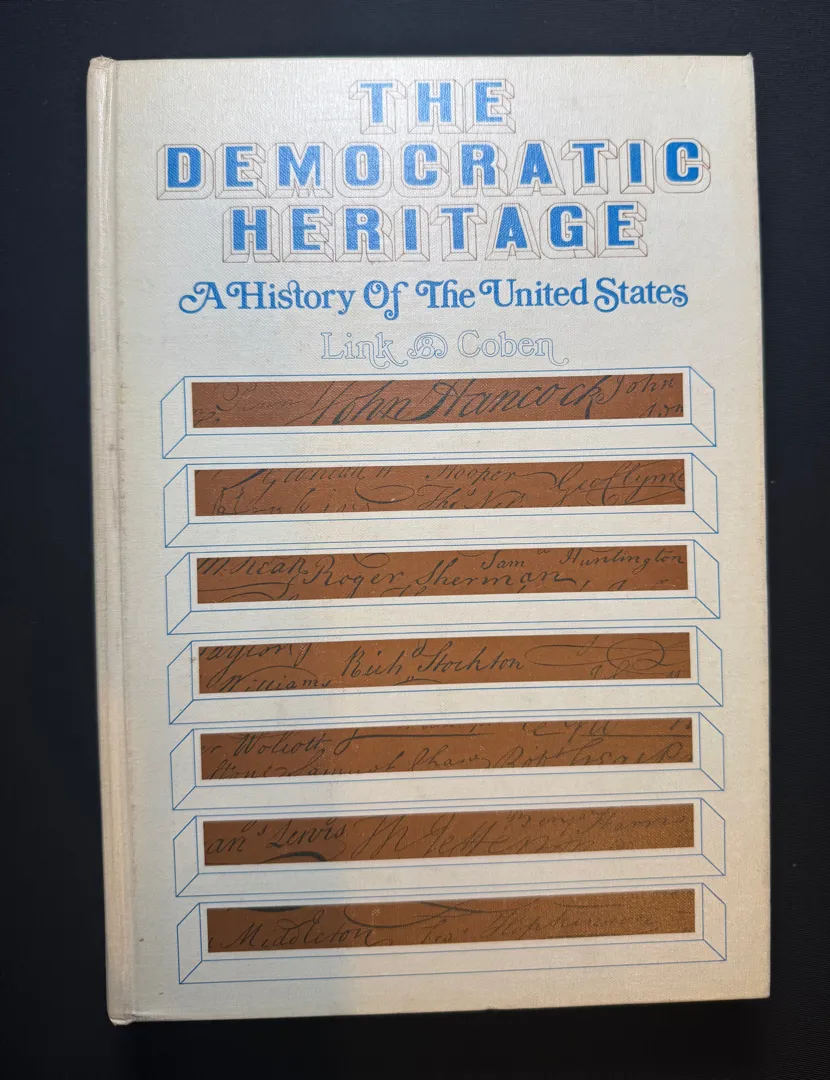 THE
DEMOCRATIC
HERITAGE
A History Of The United States
Link & Coben
John Hancock John
Hooper Geo Clym
M:Kean Roger Sherman Sam Huntington
Rich Stockton
Williams
Wolcott
Samuel Chase Robt
Lewis Th Jefferson Benj Harris
Middleton Fras Hopkinson